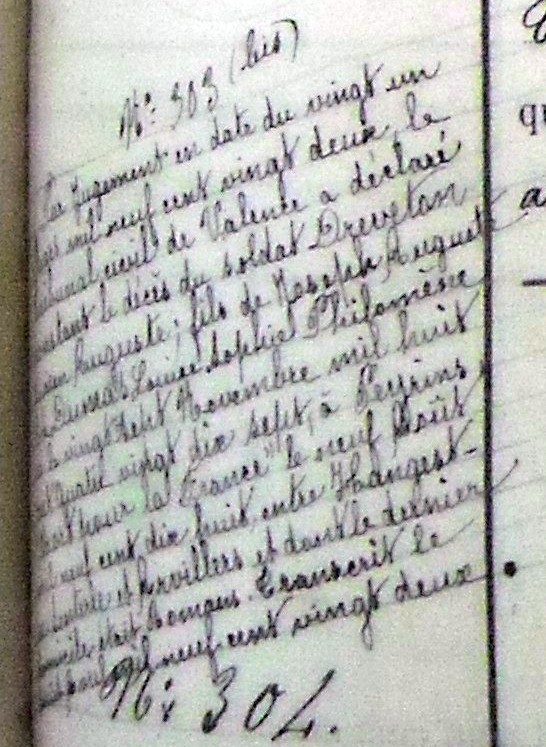 N°: 303 (bis)
Par Jugement en date du vingt un
mil neuf cent vingt deux, le
Tribunal civil de Valence a déclaré
constant le décès du soldat Drevetan
Auguste, fils de Joseph Auguste
Louise Sophie Philomène
vingt sept Novembre mil huit
cent quatre vingt dix sept, à Peyrins
mort pour la France" le neuf Août
mil neuf cent dix huit entre Hangest-
en Santerre et Arvillers et dont le dernier
domicile était Romans. Transcrit le
mil neuf cent vingt deux
N°: 304.
qu
a